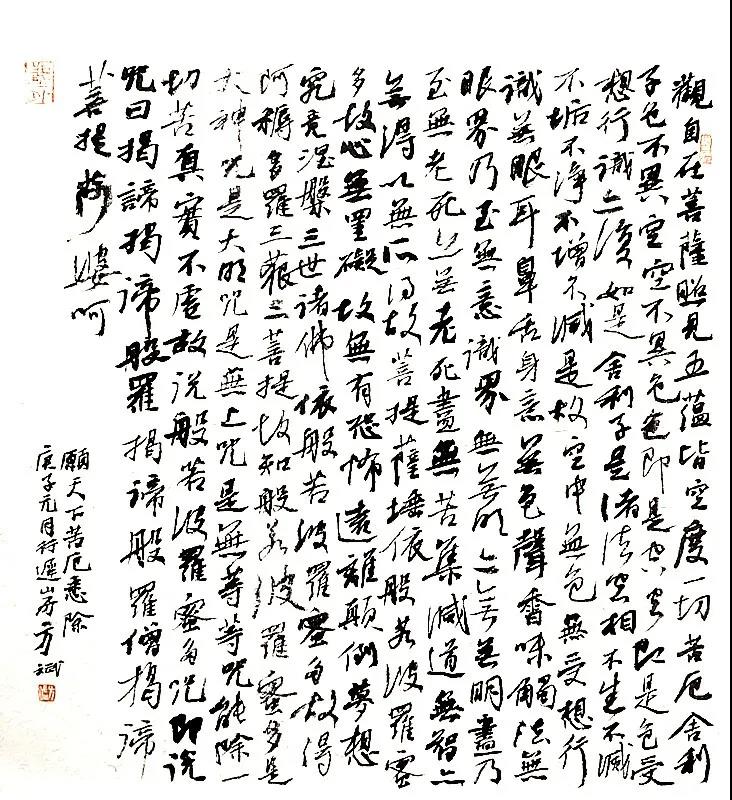 觀自在菩薩照見五蘊皆空度一切苦厄舍利
子色不異空空不異色色即是空空即是色受
想行識亦復如是舍利子是諸法空相不生不滅
不垢不淨不增不減是故空中無色無受想行
識無眼耳鼻舌身意無色聲香味觸法無
眼界乃至無意識界無無明亦無無明盡乃
至無老死亦無老死盡無苦集滅道無智亦
無得以無所得故菩提薩埵依般若波羅蜜
多故心無罣礙故無有恐怖遠離顛倒夢想
究竟涅槃三世諸佛依般若波羅蜜多故得
阿耨多羅三藐三菩提故知般若波羅蜜多是
大神咒是大明咒是無上咒是無等等咒能除一
切苦真實不虛故說般若波羅蜜多咒即說
咒曰揭諦揭諦般羅揭諦般羅僧揭諦
菩提薩婆呵
願天下苦厄悉除
庚子元月方斌